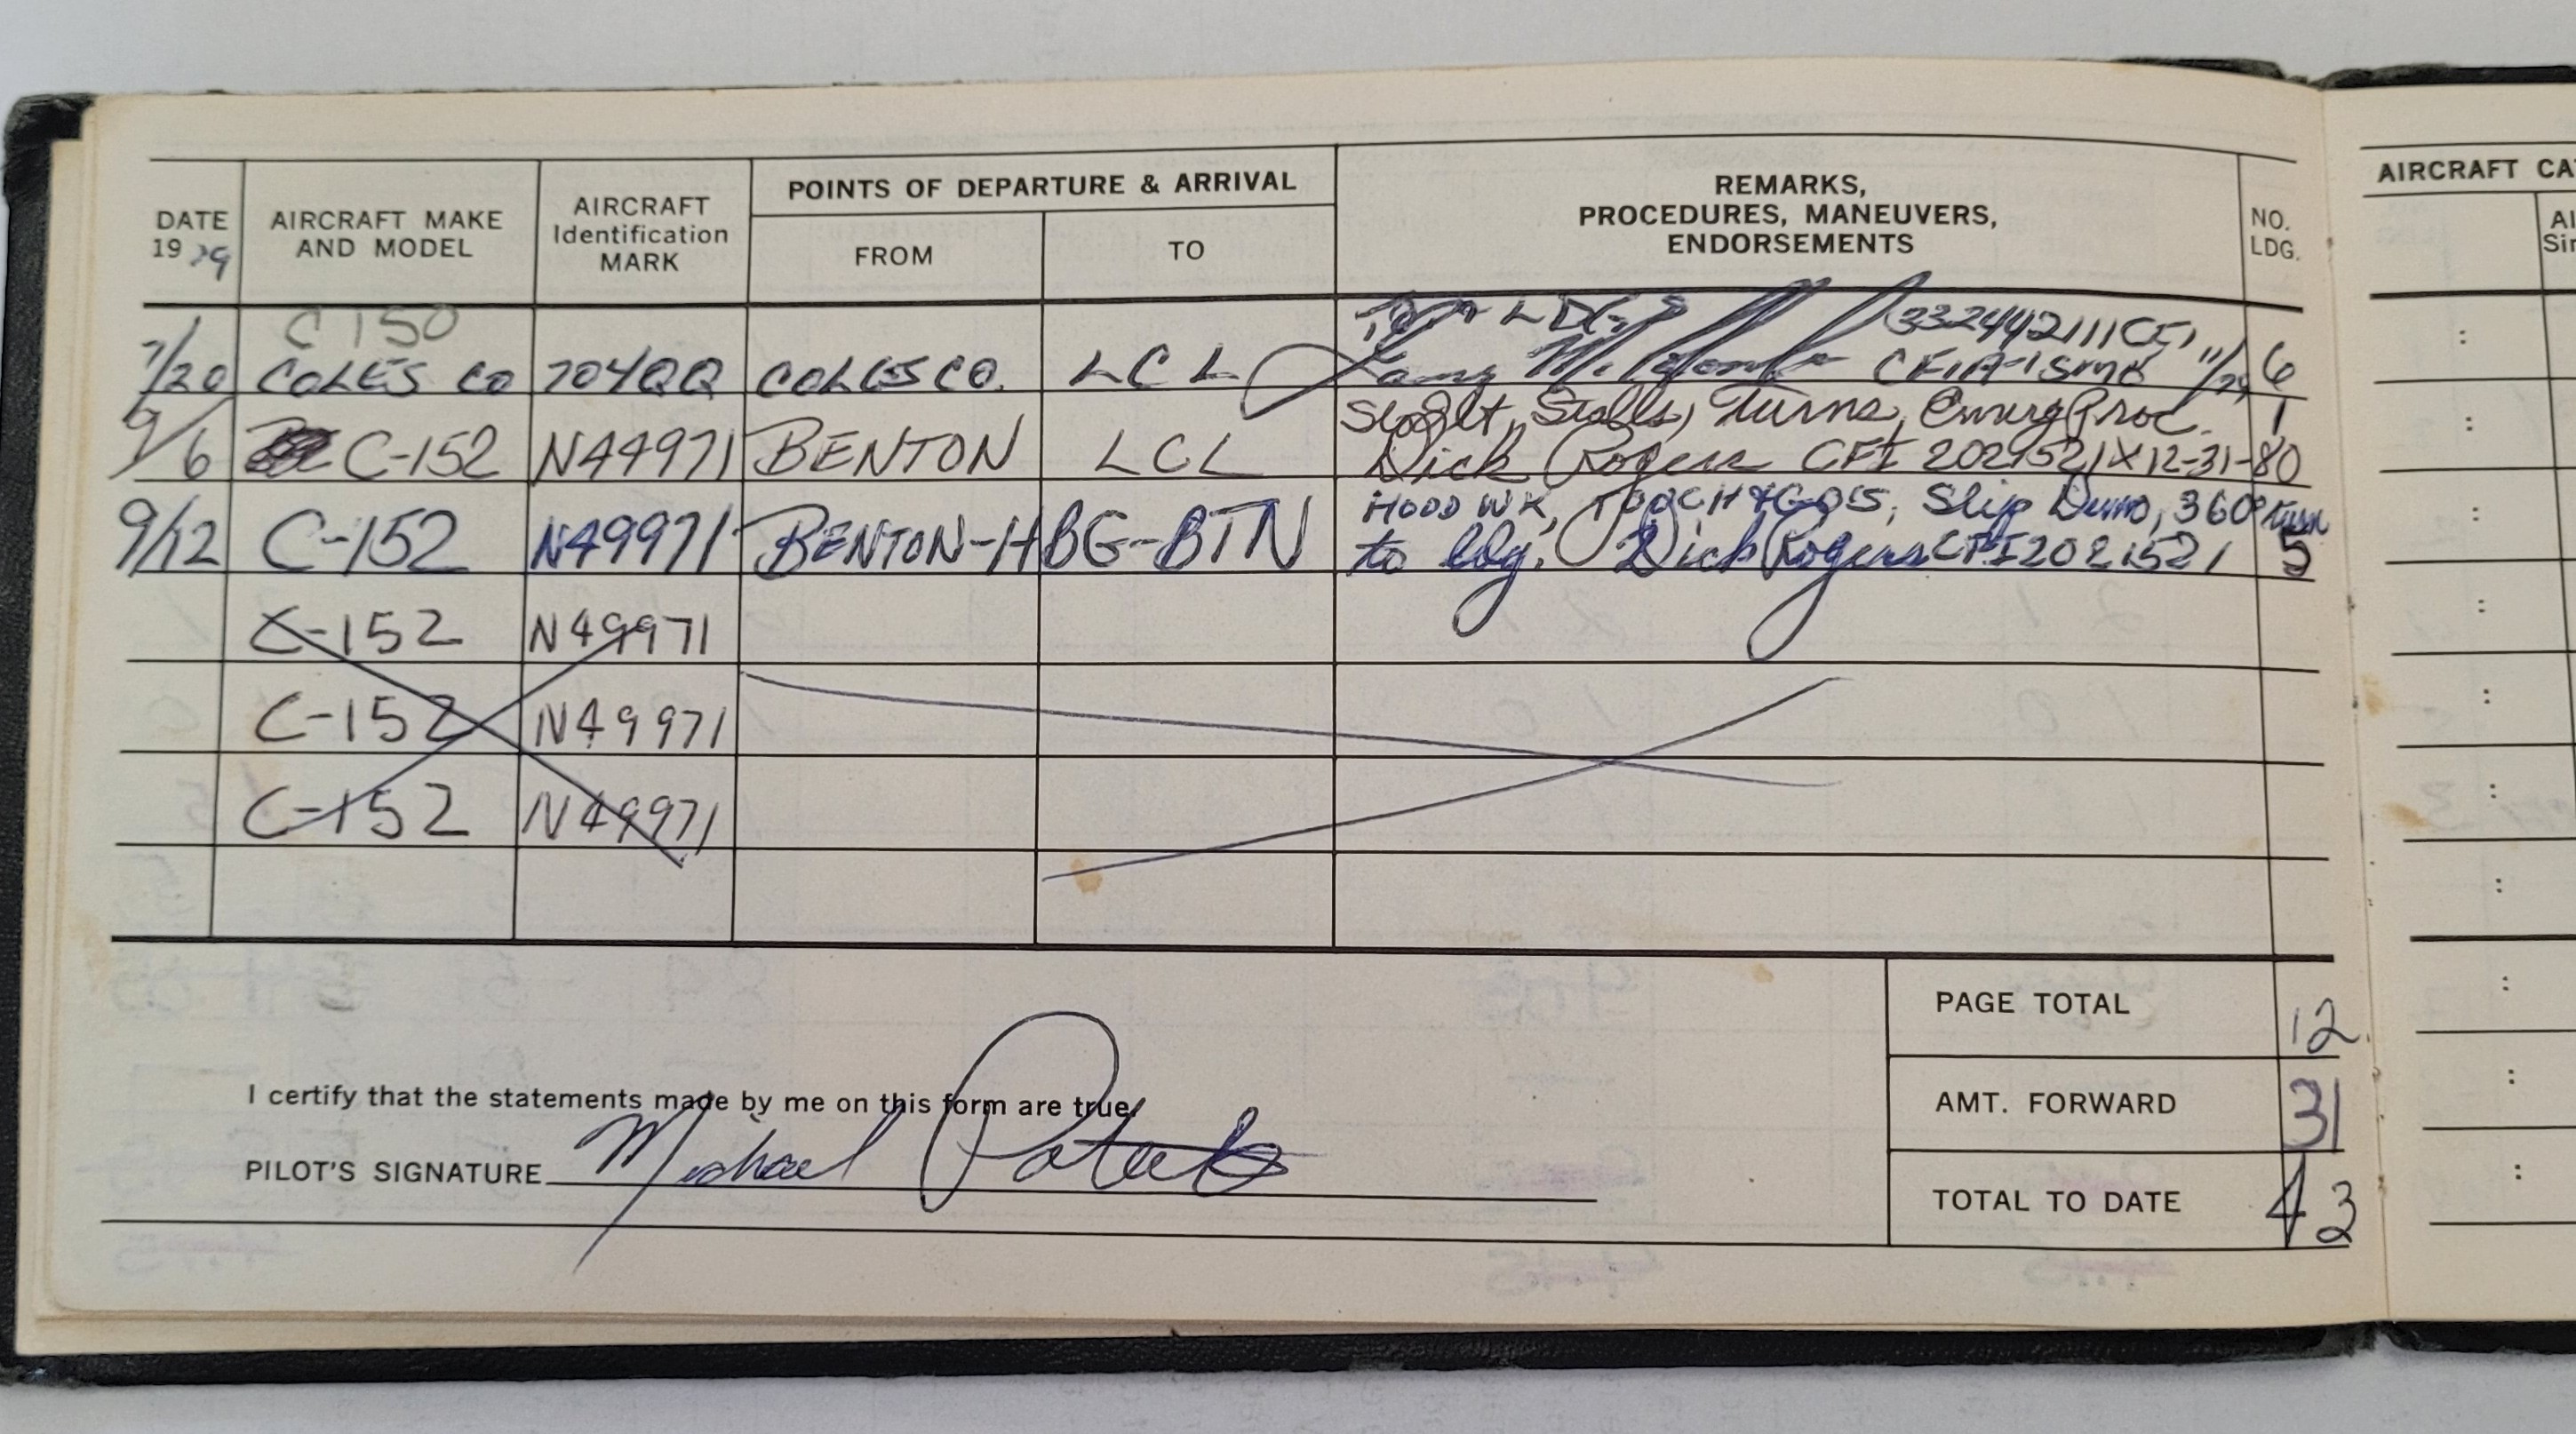 AIRCRAFT CA
POINTS OF DEPARTURE & ARRIVAL
REMARKS,
DATE AIRCRAFT MAKE AIRCRAFT PROCEDURES, MANEUVERS, NO. AI
19 79 AND MODEL Identification FROM TO ENDORSEMENTS LDG. Sir
MARK
C 150 LDGS 3324442111CFI
7/20 COLES CO 704QQ COLES CO. LCL CFIA+ISMB 11/79 6
Slo Flt, Stalls, Turns, Emerg Proc. 1
9/6 C-152 N44971 BENTON LCL Dick Rogers CFI 2021521 X 12-31-80
HOOD WK, TOUCH & GOES, Slip Demo, 360° turn
9/12 C-152 N49971 BENTON-HBG-BTN to ldg. Dick Rogers CFI 2021521 5
C-152 N49971
C-152 N49971
C-152 N49971
PAGE TOTAL 12
I certify that the statements made by me on this form are true.
AMT. FORWARD 31
PILOT'S SIGNATURE Michael
TOTAL TO DATE 43